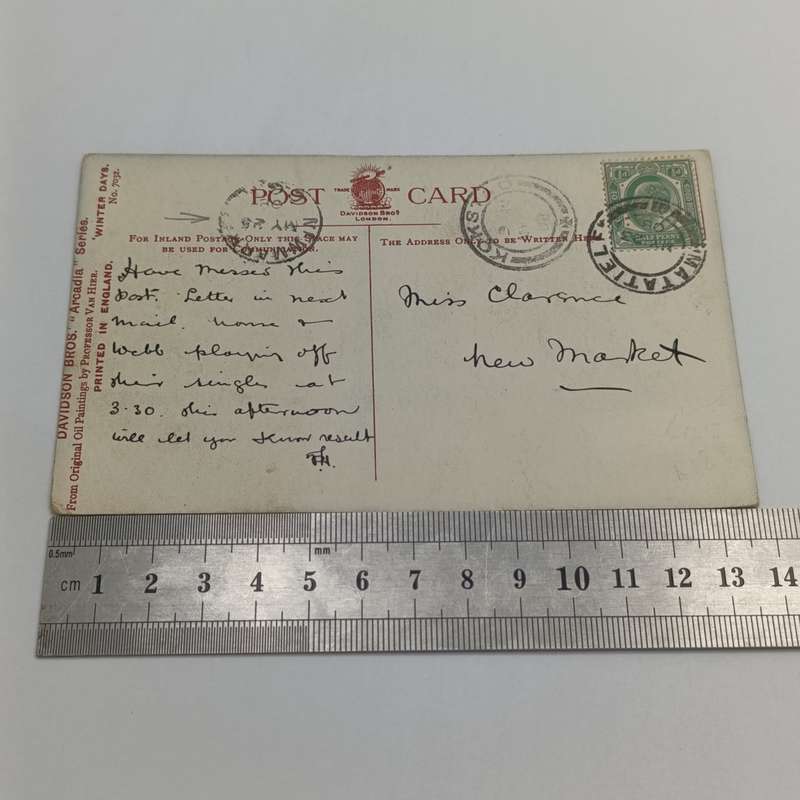 DAVIDSON BROS. "Arcadia" Series.
From Original Oil Paintings by PROFESSOR VAN HIER.
PRINTED IN ENGLAND.
'WINTER DAYS.
No. 7032.
POST CARD
TRADE MARK
DAVIDSON BROS
LONDON.
FOR INLAND POSTAGE ONLY THIS SPACE MAY
BE USED FOR COMMUNICATION.
THE ADDRESS ONLY TO BE WRITTEN HERE.
MY 25
KOKS
MATATIELE
HALF PENNY
Have missed this
Post. Letter in next
mail.
Webb playing off
their singles at
3.30. this afternoon
will let you know result
Miss Clarence
New Market
0.5mm
mm
cm 1 2 3 4 5 6 7 8 9 10 11 12 13 14